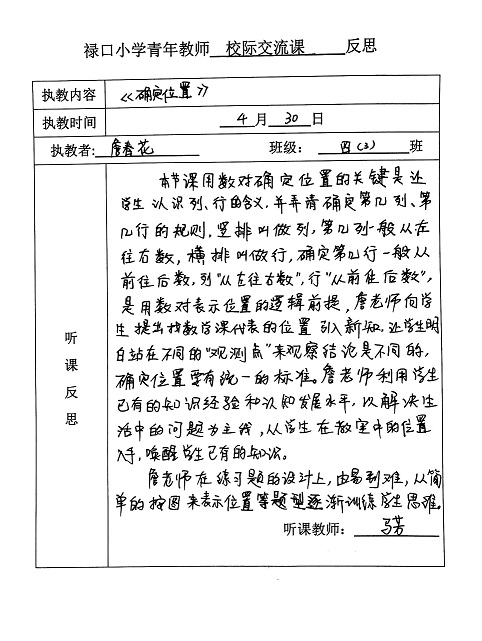 禄口小学青年教师 校际交流课 反思
执教内容 《确定位置》
执教时间 4 月 30 日
执教者: 詹春花 班级: 四(3) 班
听课反思
本节课用数对确定位置的关键是让
学生认识列、行的含义,并弄清确定第几列、第
几行的规则,竖排叫做列,第几列一般从左
往右数,横排叫做行,确定第几行一般从
前往后数,列“从左往右数”,行“从前往后数”,
是用数对表示位置的逻辑前提,詹老师向学
生提出找数学课代表的位置引入新知,让学生明
白站在不同的“观测点”来观察结论是不同的,
确定位置要有统一的标准。詹老师利用学生
已有的知识经验和认知发展水平,以解决生
活中的问题为主线,从学生在教室中的位置
入手,唤醒学生已有的知识。
詹老师在练习题的设计上,由易到难,从简
单的按图来表示位置等题型逐渐训练学生思维。
听课教师: 马芳